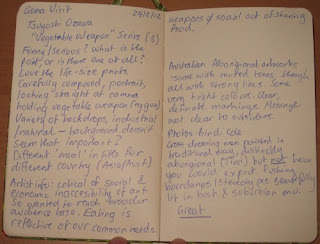 Goma Visit 29/12/12
Tsuyoshi Ozawa
"Vegetable Weapon" Series (3)
Funny/Serious? What is the
point, or is there one at all?
Love the life-size prints
Carefully composed, portrait,
looking straight at camera
holding vegetable weapon (my gun)
Variety of backdrops, industrial
/natural - background doesn't
seem that important?
Different 'meal' ingts for
different country (Asia/Aust)
Artist info: critical of social &
economic inaccessibility of art
So wanted to reach broader
audience base. Eating is
reflective of our common needs
weapons & social act of sharing
food.
Australian Aboriginal artworks
some with muted tones, though
all with strong lines. Some
very bright colours. Clear,
definite markings. Message
not clear to outsiders.
Photos - Bindi Cole
Cross dressing men painted in
traditional way, distinctly
aboriginal (Tiwi) but not how
you would expect. Pushing
boundaries / stereotypes. Beautifully
lit in both & suburban env.
Great